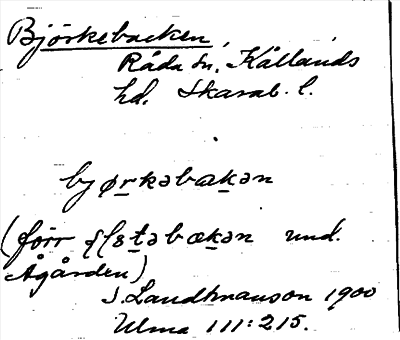 Björkebacken,
Råda sn. Kållands
hd. Skarab. l.
bjørkəbakən
(förr ɛlstəbakən und.
Ågården)
J. Landtmanson 1900
Ulma 111:215.